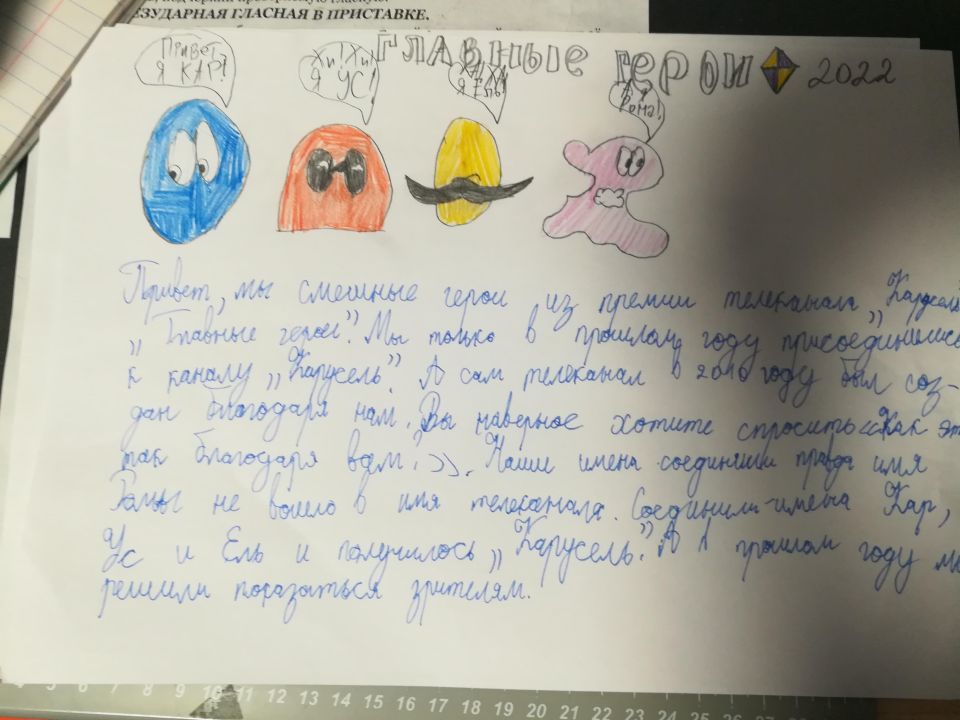 БЕЗУДАРНАЯ ГЛАСНАЯ В ПРИСТАВКЕ.
ГЛАВНЫЕ ГЕРОИ 2022
Привет
Я КАР!
Хи! Хи!
Я УС!
Я ЕЛЬ!
Я
Рома!
Привет, мы смешные герои из премии телеканала „Карусель
„Главные герои". Мы только в прошлом году присоединились
к каналу „Карусель". А сам телеканал в 2010 году был соз-
дан благодаря нам. Вы наверное хотите спросить «Как эт
так благодаря вам?». Наши имена соединили правда имя
Ромы не вошло в имя телеканала. Соединили имена Кар,
Ус и Ель и получилось „Карусель". А в прошлом году мы
решили показаться зрителям.
5 6 7 8 9 10 11 12 13 14 15 16 17 18 19 20 21 22 23 24 25 26 27 28